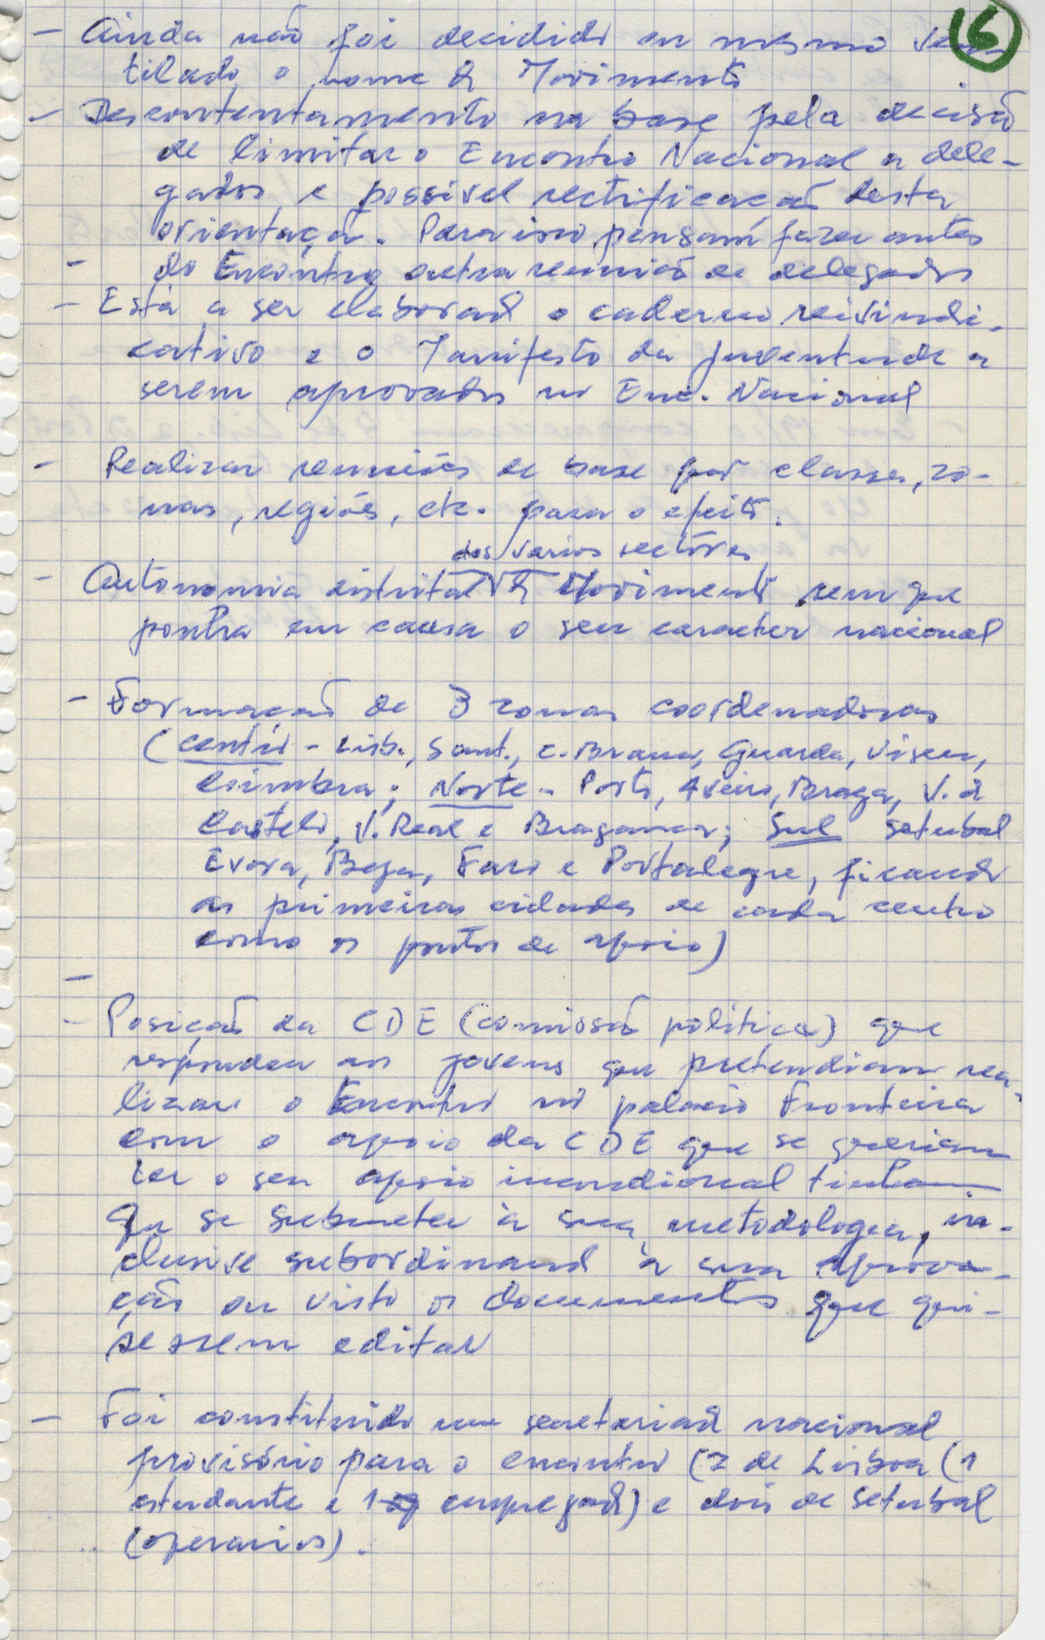 6
- Ainda não foi decidido ou mesmo ven
tilado o nome do Movimento
- Descontentamento na base pela decisão
de limitar o Encontro Nacional a dele-
gados e possível rectificação desta
orientação. Para isso pensam fazer antes
- do Encontro outra reunião de delegados
- Está a ser elaborado o caderno reivindi-
cativo e o Manifesto da Juventude a
serem aprovados no Enc. Nacional
- Realizar reuniões de base por classes, zo-
nas, regiões, etc. para o efeito.
dos varios sectores
- Autonomia distrital do Movimento sem que
ponha em causa o seu caracter nacional
- Formação de 3 zonas coordenadoras
(centro - Lisb., Sant., C. Branco, Guarda, Viseu,
Coimbra; Norte - Porto, Aveiro, Braga, V. do
Castelo, V. Real e Bragança; Sul Setubal
Evora, Beja, Faro e Portalegre, ficando
as primeiras cidades de cada centro
como os pontos de apoio)
-
- Posição da CDE (comissão política) que
respondeu aos jovens que pretendiam rea-
lizar o Encontro no palácio Fronteira
com o apoio da CDE que se queriam
ter o seu apoio incondicional tinham
que se submeter à sua metodologia, in-
clusive subordinando à sua aprova-
ção ou visto os documentos que qui-
sessem editar
- Foi constituido um secretariado nacional
provisório para o encontro (2 de Lisboa (1
estudante e 1 empregado) e dois de Setubal
(operarios).